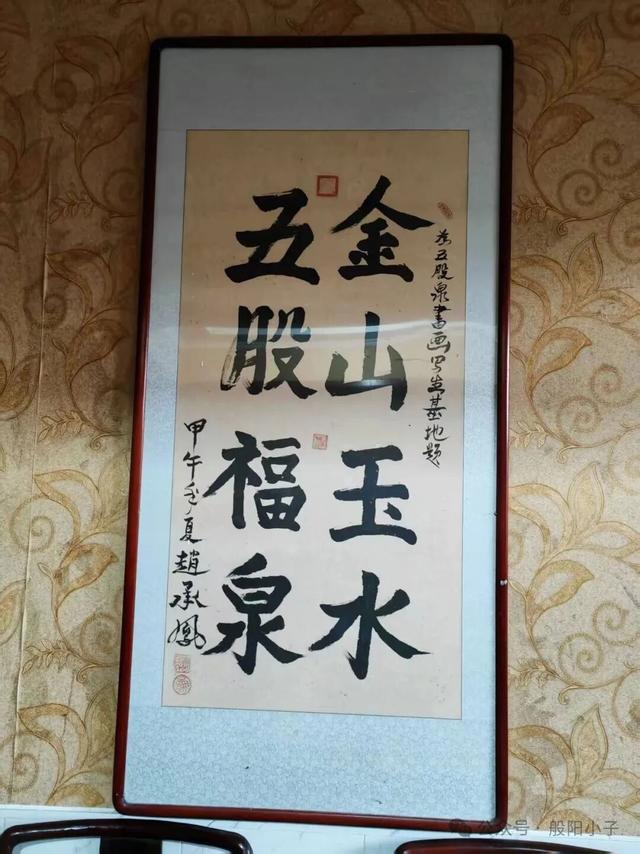 为五股泉書画写生基地题
金山玉水
五股福泉
甲午年夏趙承鳳
公众号·般阳小子